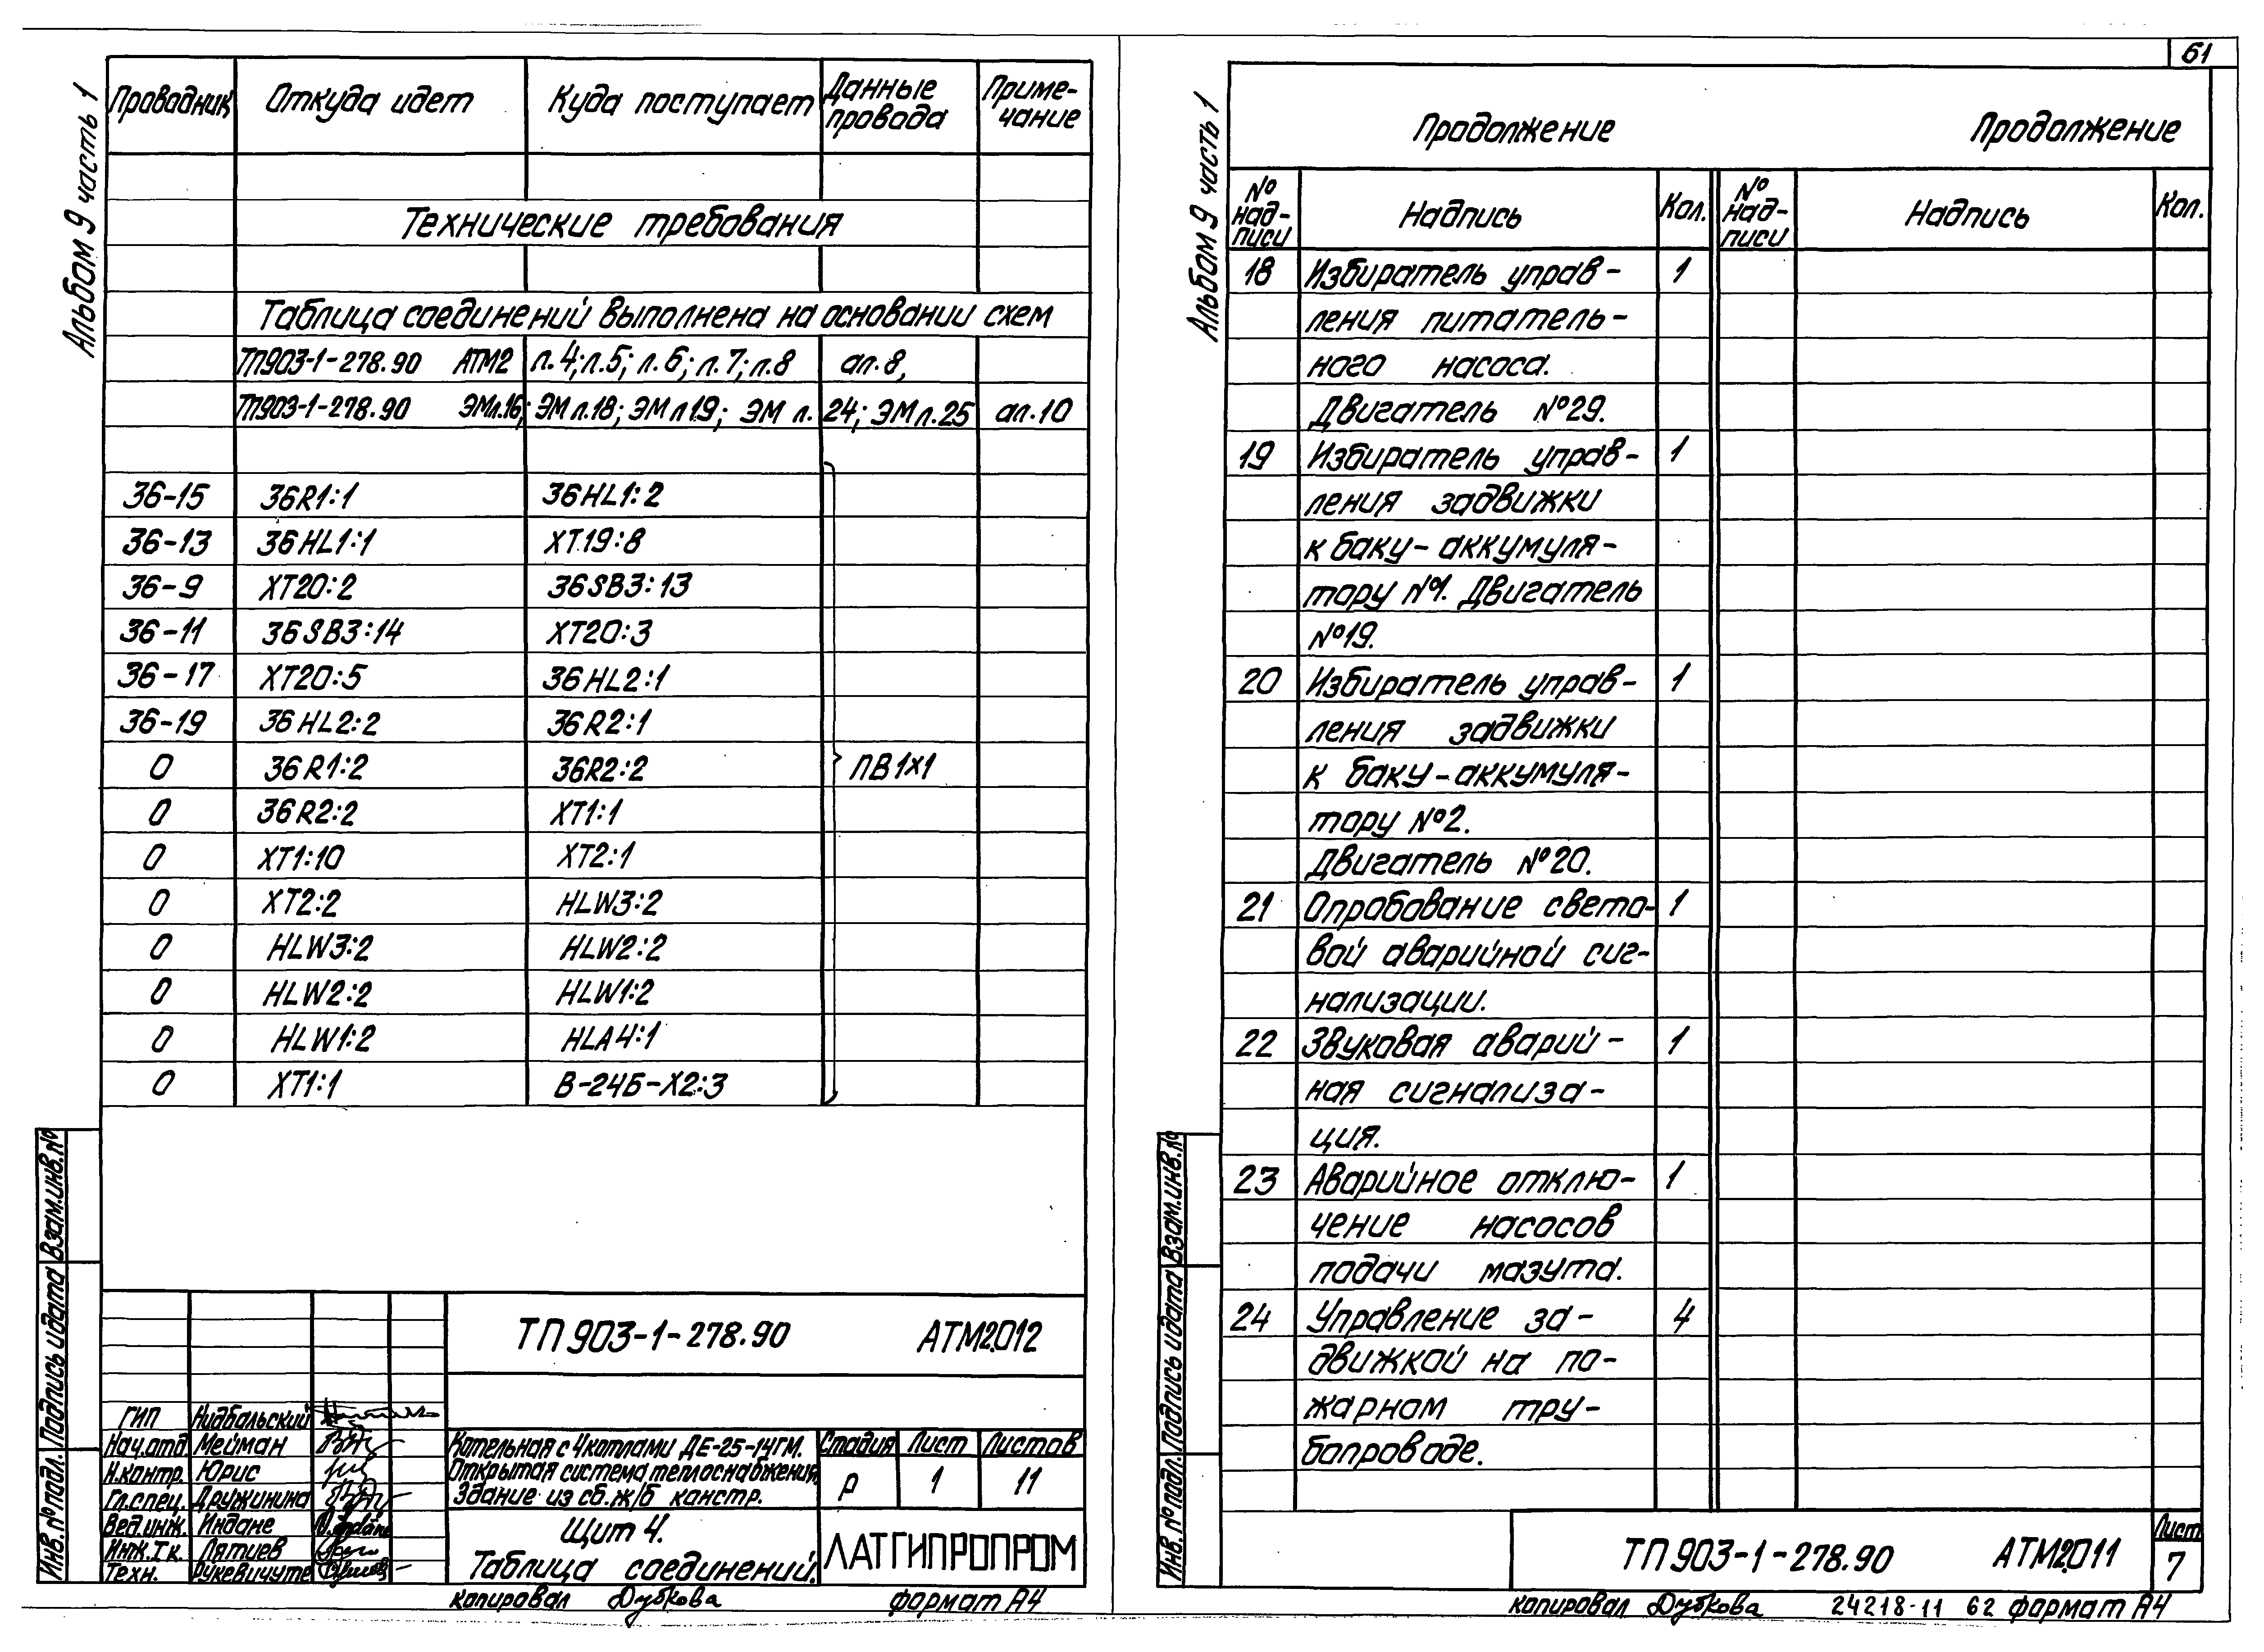 Альбом 9 часть 1
Проводник Откуда идет Куда поступает Данные провода Приме-чание
Технические требования
Таблица соединений выполнена на основании схем
ТП903-1-278.90 АТМ2 л.4; л.5; л.6; л.7; л.8 ал.8,
ТП903-1-278.90 ЭМл.16; ЭМ л.18; ЭМ л19; ЭМ л. 24; ЭМ л.25 ал.10
36-15 36R1:1 36HL1:2
36-13 36HL1:1 XT19:8
36-9 XT20:2 36SB3:13
36-11 36SB3:14 XT20:3
36-17 XT20:5 36HL2:1
36-19 36HL2:2 36R2:1
0 36R1:2 36R2:2 ПВ1х1
0 36R2:2 XT1:1
0 XT1:10 XT2:1
0 XT2:2 HLW3:2
0 HLW3:2 HLW2:2
0 HLW2:2 HLW1:2
0 HLW1:2 HLA4:1
0 XT1:1 В-24Б-Х2:3
Инв.№подл. Подпись и дата Взам.инв.№
ТП903-1-278.90 АТМ2.012
ГИП Нидбальский
Нач.отд. Мейман
Н.контр. Юрис
Гл.спец. Дружинина
Вед.инж. Индане
Инж.I к. Лятиев
Техн. Рукевичуте
Котельная с 4 котлами ДЕ-25-14ГМ.
Открытая система теплоснабжения.
Здание из сб.ж/б констр.
Стадия Лист Листов
Р 1 11
Щит 4.
Таблица соединений.
ЛАТГИПРОПРОМ
копировал Дубкова формат А4
61
Альбом 9 часть 1
Продолжение Продолжение
№ над-писи Надпись Кол. № над-писи Надпись Кол.
18 Избиратель управ- 1
ления питатель-
ного насоса.
Двигатель №29.
19 Избиратель управ- 1
ления задвижки
к баку-аккумуля-
тору №1. Двигатель
№19.
20 Избиратель управ- 1
ления задвижки
к баку-аккумуля-
тору №2.
Двигатель №20.
21 Опробование свето- 1
вой аварийной сиг-
нализации.
22 Звуковая аварий- 1
ная сигнализа-
ция.
23 Аварийное отклю- 1
чение насосов
подачи мазута.
24 Управление за- 4
движкой на по-
жарном тру-
бопроводе.
Инв.№подл. Подпись и дата Взам.инв.№
ТП903-1-278.90 АТМ2.011
Лист
7
копировал Дубкова 24218-11 62 формат А4